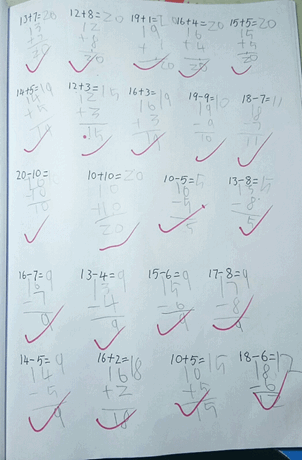 13+7=20 12+8=20 19+1=20 16+4=20 15+5=20
13 12 19 16 15
+7 +8 +1 +4 +5
20 20 20 20 20
14+5=19 12+3=15 16+3=19 19-9=10 18-7=11
19 12 16 19 18
+3 +3 -9
19 15 19 10 11
20-10= 10+10=20 10-5=5 13-8=5
10 10 13
+10 -5 -8
10 20 5 5
16-7=9 13-4=9 15-6=9 17-8=9
16 13 15 17
-7 -4 -6 -8
9 9 9 9
14-5=9 16+2=18 10+5=15 18-6=12
14 16 10 18
-5 +2 +5 -6
9 18 15